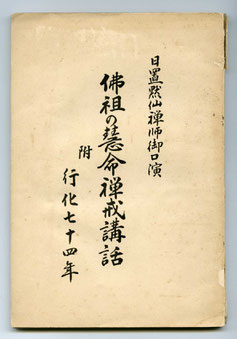 日置黙仙禅師御口演
佛祖の慧命禅戒講話
附
行化七十四年